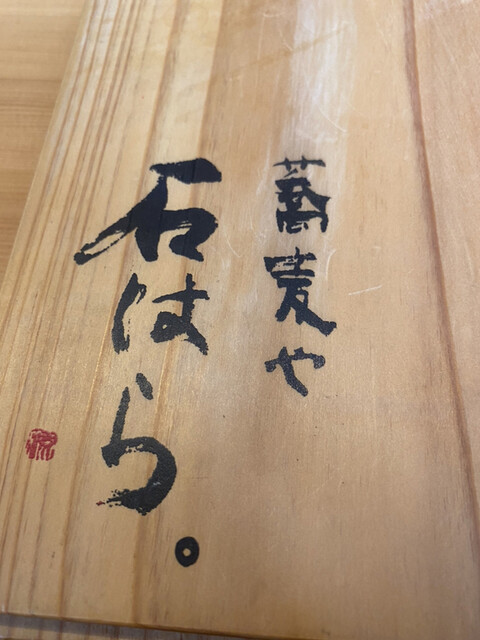 蕎麦や
石はら。